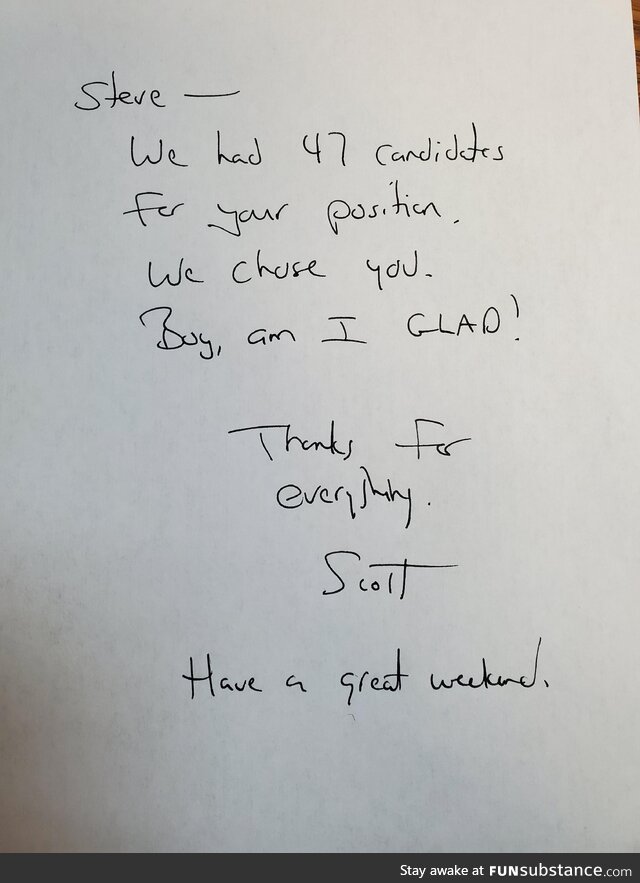 Steve —
We had 47 candidates
for your position.
We chose you.
Boy, am I GLAD!
Thanks for
everything.
Scott
Have a great weekend.
Stay awake at FUNsubstance.com